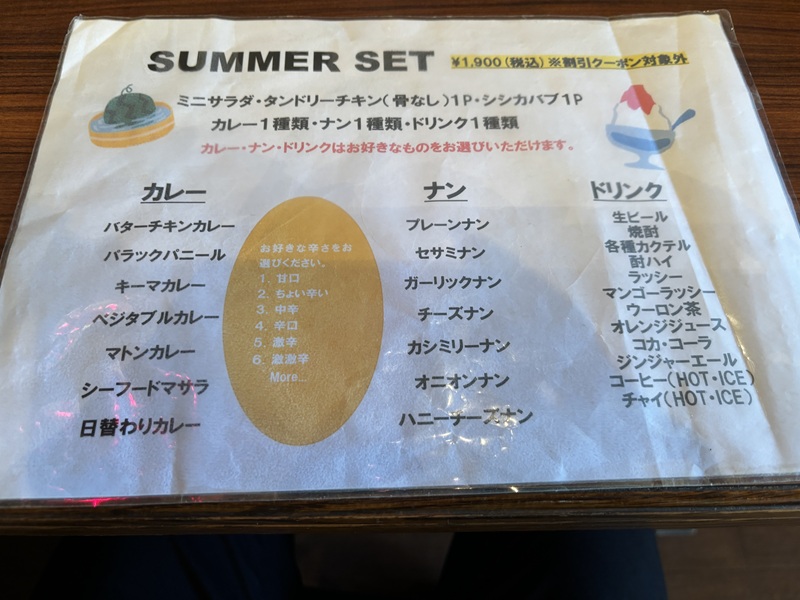 SUMMER SET ¥1,900(税込)※割引クーポン対象外
ミニサラダ・タンドリーチキン(骨なし)1P・シシカバブ1P
カレー1種類・ナン1種類・ドリンク1種類
カレー・ナン・ドリンクはお好きなものをお選びいただけます。
カレー
バターチキンカレー
バラックパニール
キーマカレー
ベジタブルカレー
マトンカレー
シーフードマサラ
日替わりカレー
お好きな辛さをお
選びください。
1. 甘口
2. ちょい辛い
3. 中辛
4. 辛口
5. 激辛
6. 激激辛
More...
ナン
プレーンナン
セサミナン
ガーリックナン
チーズナン
カシミリーナン
オニオンナン
ハニーチーズナン
ドリンク
生ビール
焼酎
各種カクテル
酎ハイ
ラッシー
マンゴーラッシー
ウーロン茶
オレンジジュース
コカ・コーラ
ジンジャーエール
コーヒー(HOT・ICE)
チャイ(HOT・ICE)